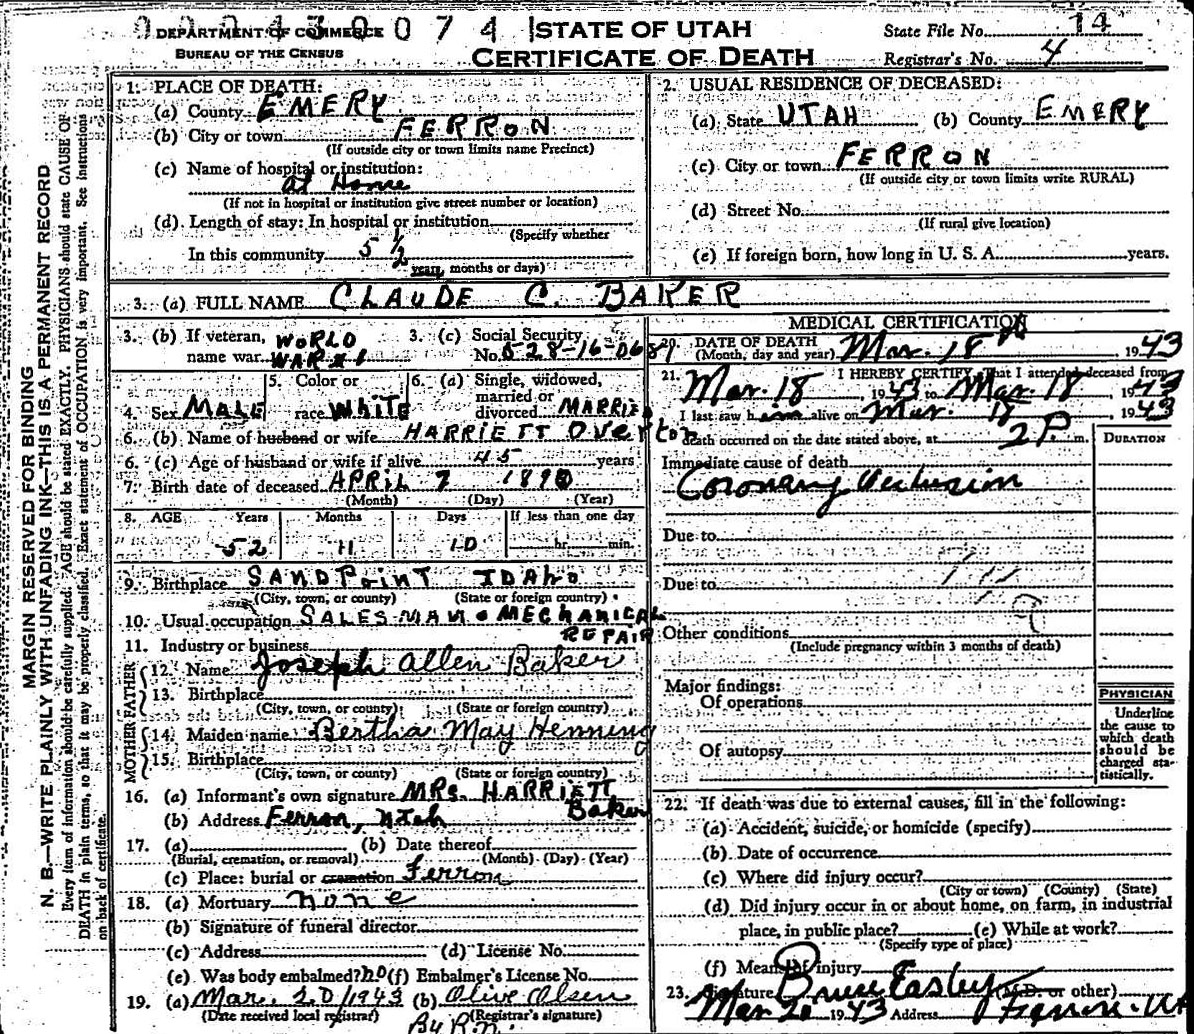 0 7 4
DEPARTMENT OF COMMERCE
BUREAU OF THE CENSUS
STATE OF UTAH
CERTIFICATE OF DEATH
State File No. 14
Registrar's No. 4
MARGIN RESERVED FOR BINDING
N. B.—WRITE PLAINLY WITH UNFADING INK—THIS IS A PERMANENT RECORD
Every item of information should be carefully supplied. AGE should be stated EXACTLY. PHYSICIANS should state CAUSE OF
DEATH in plain terms, so that it may be properly classified. Exact statement of OCCUPATION is very important. See instructions
on back of certificate.
1. PLACE OF DEATH:
(a) County EMERY
(b) City or town FERRON
(If outside city or town limits name Precinct)
(c) Name of hospital or institution:
at Home
(If not in hospital or institution give street number or location)
(d) Length of stay: In hospital or institution
(Specify whether
In this community 5 1/2
years, months or days)
2. USUAL RESIDENCE OF DECEASED:
(a) State UTAH (b) County EMERY
(c) City or town FERRON
(If outside city or town limits write RURAL)
(d) Street No.
(If rural give location)
(e) If foreign born, how long in U. S. A. years.
3. (a) FULL NAME CLAUDE C. BAKER
3. (b) If veteran, name war WORLD WAR #1
3. (c) Social Security No. 528-16-0681
4. Sex MALE
5. Color or race WHITE
6. (a) Single, widowed, married or divorced MARRIED
6. (b) Name of husband or wife HARRIETT Overton
6. (c) Age of husband or wife if alive 45 years
7. Birth date of deceased APRIL 7 1890
(Month) (Day) (Year)
8. AGE Years Months Days If less than one day
52 11 10 hr. min.
9. Birthplace SANDPOINT IDAHO
(City, town, or county) (State or foreign country)
10. Usual occupation SALESMAN & MECHANICAL
REPAIR
11. Industry or business
FATHER
12. Name Joseph Allen Baker
13. Birthplace
(City, town, or county) (State or foreign country)
MOTHER
14. Maiden name Bertha May Henning
15. Birthplace
(City, town, or county) (State or foreign country)
16. (a) Informant's own signature MRS. HARRIETT
Baker
(b) Address Ferron, Utah
17. (a) (b) Date thereof
(Burial, cremation, or removal) (Month) (Day) (Year)
(c) Place: burial or cremation Ferron
18. (a) Mortuary none
(b) Signature of funeral director
(c) Address (d) License No.
(e) Was body embalmed? no (f) Embalmer's License No.
19. (a) Mar. 20/1943 (b) Olive Olsen
(Date received local registrar) (Registrar's signature)
By R.N.
MEDICAL CERTIFICATION
20. DATE OF DEATH
(Month, day and year) Mar. 18th 1943
21. I HEREBY CERTIFY That I attended deceased from
Mar. 18 1943 to Mar 18, 1943
I last saw him alive on Mar. 18 1943
death occurred on the date stated above, at 2 P. m.
DURATION
Immediate cause of death
Coronary Occlusion
Due to
Due to
Other conditions
(Include pregnancy within 3 months of death)
Major findings:
Of operations
Of autopsy
PHYSICIAN
Underline
the cause to
which death
should be
charged sta-
tistically.
22. If death was due to external causes, fill in the following:
(a) Accident, suicide, or homicide (specify)
(b) Date of occurrence
(c) Where did injury occur?
(City or town) (County) (State)
(d) Did injury occur in or about home, on farm, in industrial
place, in public place? (e) While at work?
(Specify type of place)
(f) Means of injury
23. Signature Bruce Easley (M.D. or other)
Mar 20 1943 Address Ferron-Ut